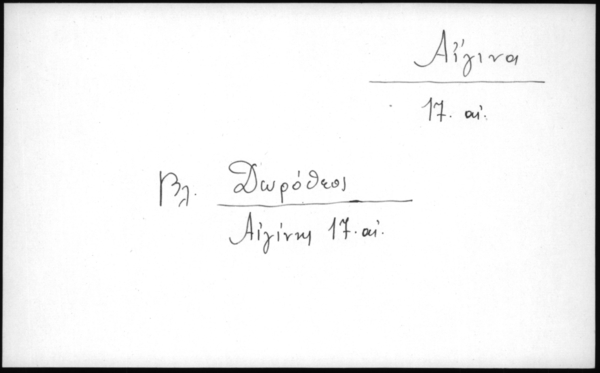 Αἴγινα
17. αἰ.
Βλ. Δωρόθεος
Αἰγίνης 17. αἰ.